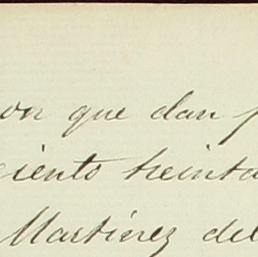 que dan
ciento treinta
Martinez del